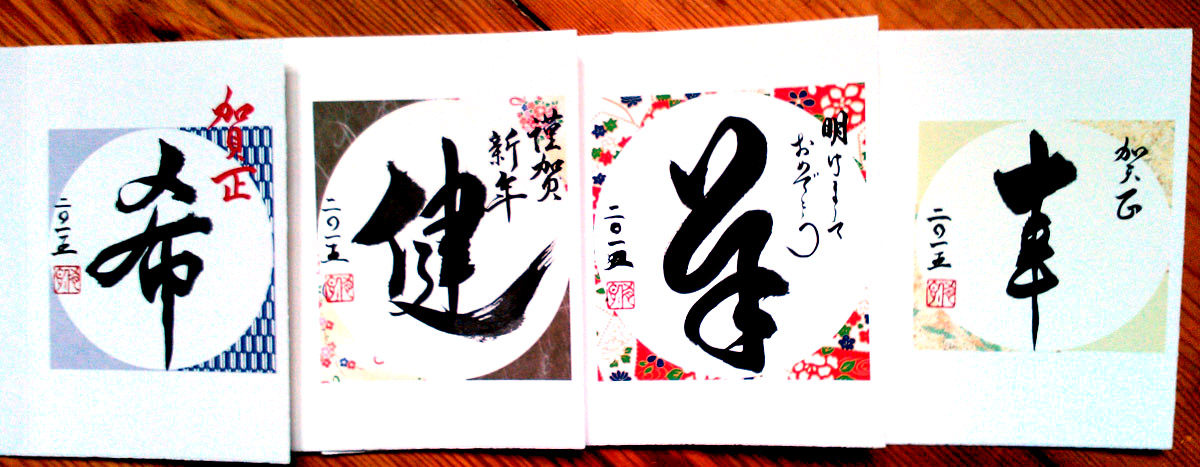 賀正
希
二〇一五
謹賀
新年
健
二〇一五
明けまして
おめでとう
羊
二〇一五
賀正
幸
二〇一五